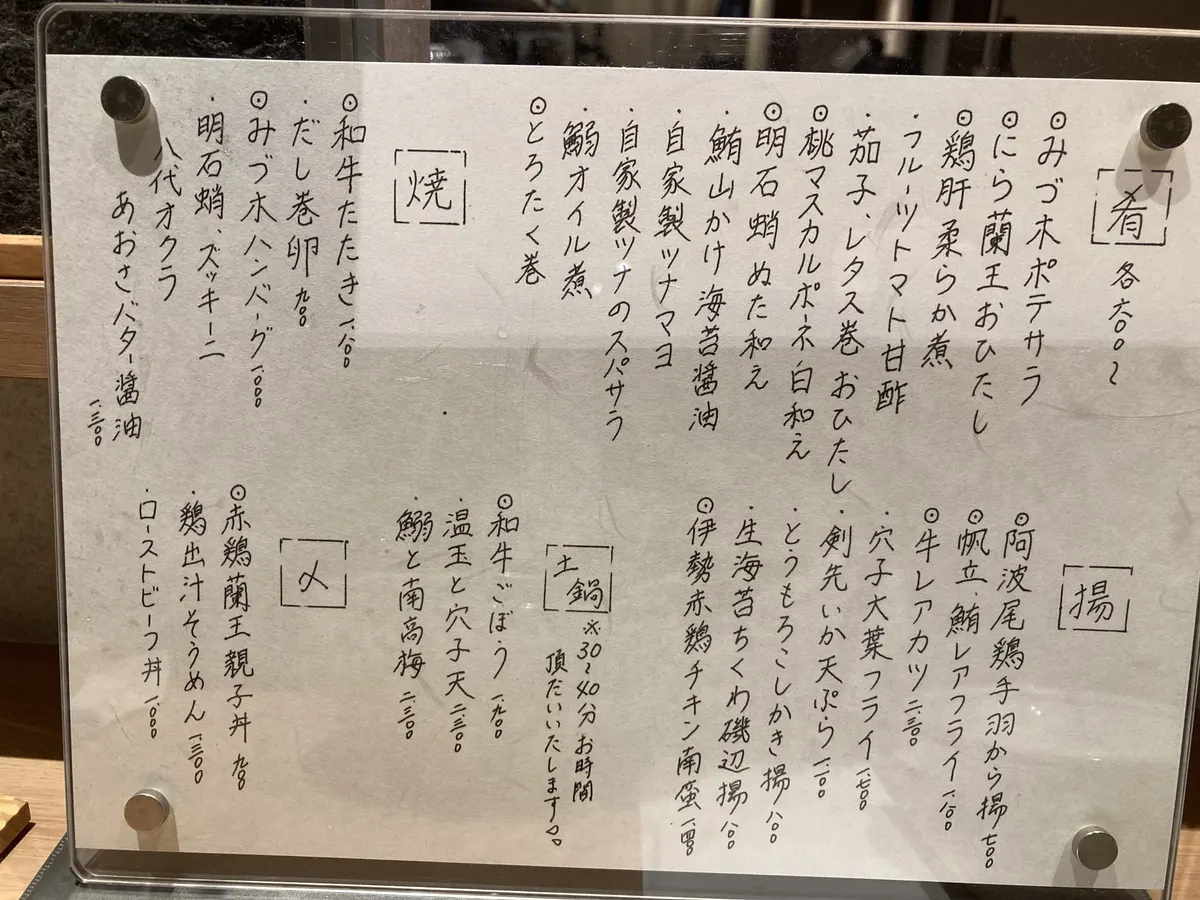 肴 各六〇〇〜
⦿みづ木ポテサラ
⦿にら蘭王おひたし
⦿鶏肝柔らか煮
・フルーツトマト甘酢
・茄子、レタス巻おひたし
⦿桃マスカルポーネ白和え
⦿明石蛸ぬた和え
・鮪山かけ海苔醤油
・自家製ツナマヨ
・自家製ツナのスパサラ
・鰯オイル煮
⦿とろたく巻
焼
⦿和牛たたき 一、八〇〇
・だし巻卵 九〇〇
⦿みづ木ハンバーグ 一、〇〇〇
・明石蛸、ズッキーニ
八代オクラ
あおさバター醤油
一、三〇〇
揚
⦿阿波尾鶏手羽から揚 七〇〇
⦿帆立、鮪レアフライ 一、八〇〇
⦿牛レアカツ 二、三〇〇
・穴子大葉フライ 一、七〇〇
・剣先いか天ぷら 一、二〇〇
・とうもろこしかき揚 八〇〇
・生海苔ちくわ磯辺揚 八〇〇
⦿伊勢赤鶏チキン南蛮 一、四〇〇
土鍋 ※30〜40分お時間
頂だいいたします◇
⦿和牛ごぼう 一、九〇〇
・温玉と穴子天 二、三〇〇
・鰯と南高梅 二、三〇〇
〆
⦿赤鶏蘭王親子丼 九〇〇
・鶏出汁そうめん 一、三〇〇
・ローストビーフ丼 一、〇〇〇